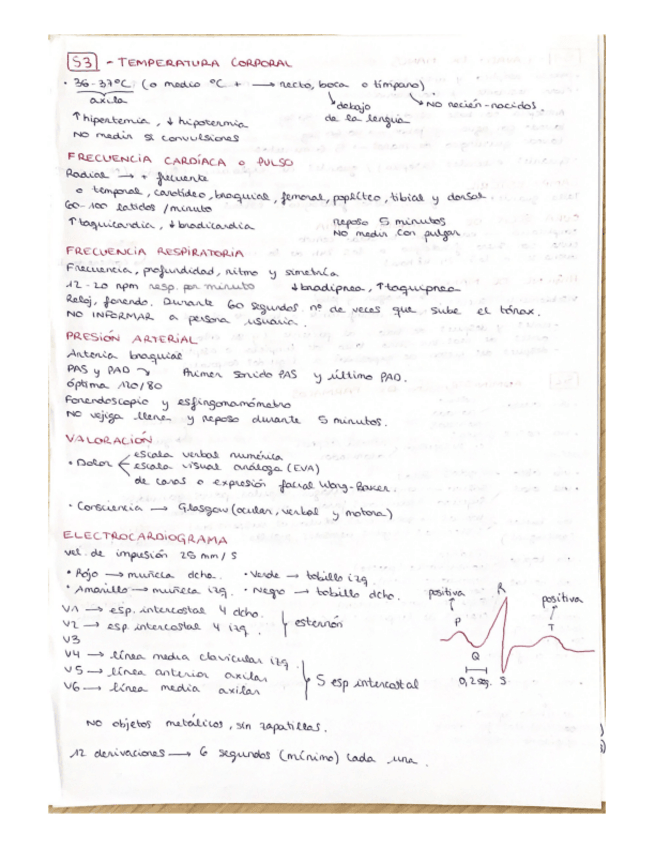 S3 - TEMPERATURA CORPORAL
· 36-37ºC (o medio ºC + → recto, boca o tímpano)
axila
debajo de la lengua
NO recién-nacidos.
↑ hipertemia, ↓ hipotermia
NO medir si convulsiones
FRECUENCIA CARDÍACA o PULSO
Radial → + frecuente
o temporal, carotídeo, braquial, femoral, poplíteo, tibial y dorsal.
60-100 latidos/minuto
↑ taquicardia, ↓ bradicardia
reposo 5 minutos
NO medir con pulgar
FRECUENCIA RESPIRATORIA
Frecuencia, profundidad, ritmo y simetría
12-20 rpm resp. por minuto ↓ bradipnea, ↑ taquipnea
Reloj, fonendo. Durante 60 segundos nº de veces que sube el tórax.
NO INFORMAR a persona usuaria.
PRESIÓN ARTERIAL
Arteria braquial
PAS y PAD → Primer sonido PAS y último PAD.
óptima 120/80
Fonendoscopio y esfingomamómetro
NO vejiga llena y reposo durante 5 minutos.
VALORACIÓN
· Dolor
escala verbal numérica
escala visual análoga (EVA)
de caras o expresión facial Wong-Baker.
· Consciencia → Glasgow (ocular, verbal y motora)
ELECTROCARDIOGRAMA
vel. de impresión 25 mm/s
· Rojo → muñeca dcha. · Verde → tobillo izq
· Amarillo → muñeca izq. · Negro → tobillo dcho.
V1 → esp. intercostal 4 dcho.
V2 → esp. intercostal 4 izq.
esternón
V3
V4 → línea media clavicular izq.
V5 → línea anterior axilar
V6 → línea media axilar
5 esp intercostal
positiva
P
Q
R
S
0,2 seg.
positiva
T
NO objetos metálicos, sin zapatillas.
12 derivaciones → 6 segundos (mínimo) cada una.